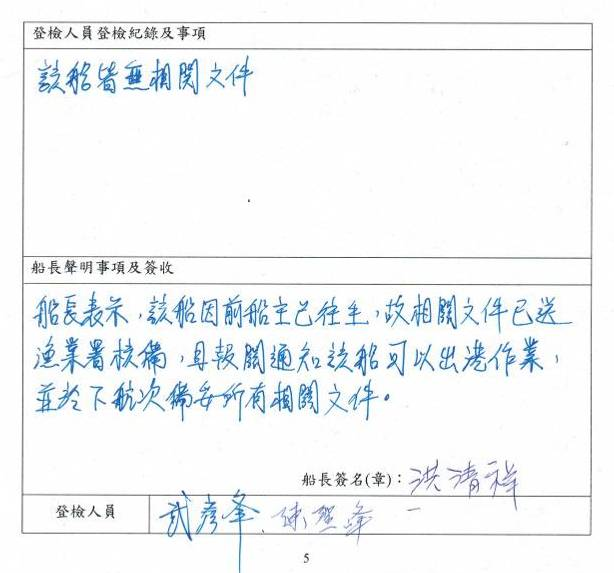 登檢人員登檢紀錄及事項
該船皆無相関文件
船長聲明事項及簽收
船長表示，該船因前船主已往生，故相關文件已送
漁業署核備，且報關通知該船可以出港作業，
並於下航次備妥所有相關文件。
船長簽名(章)：洪清祥
登檢人員 武彥峯、陳聖峰
5